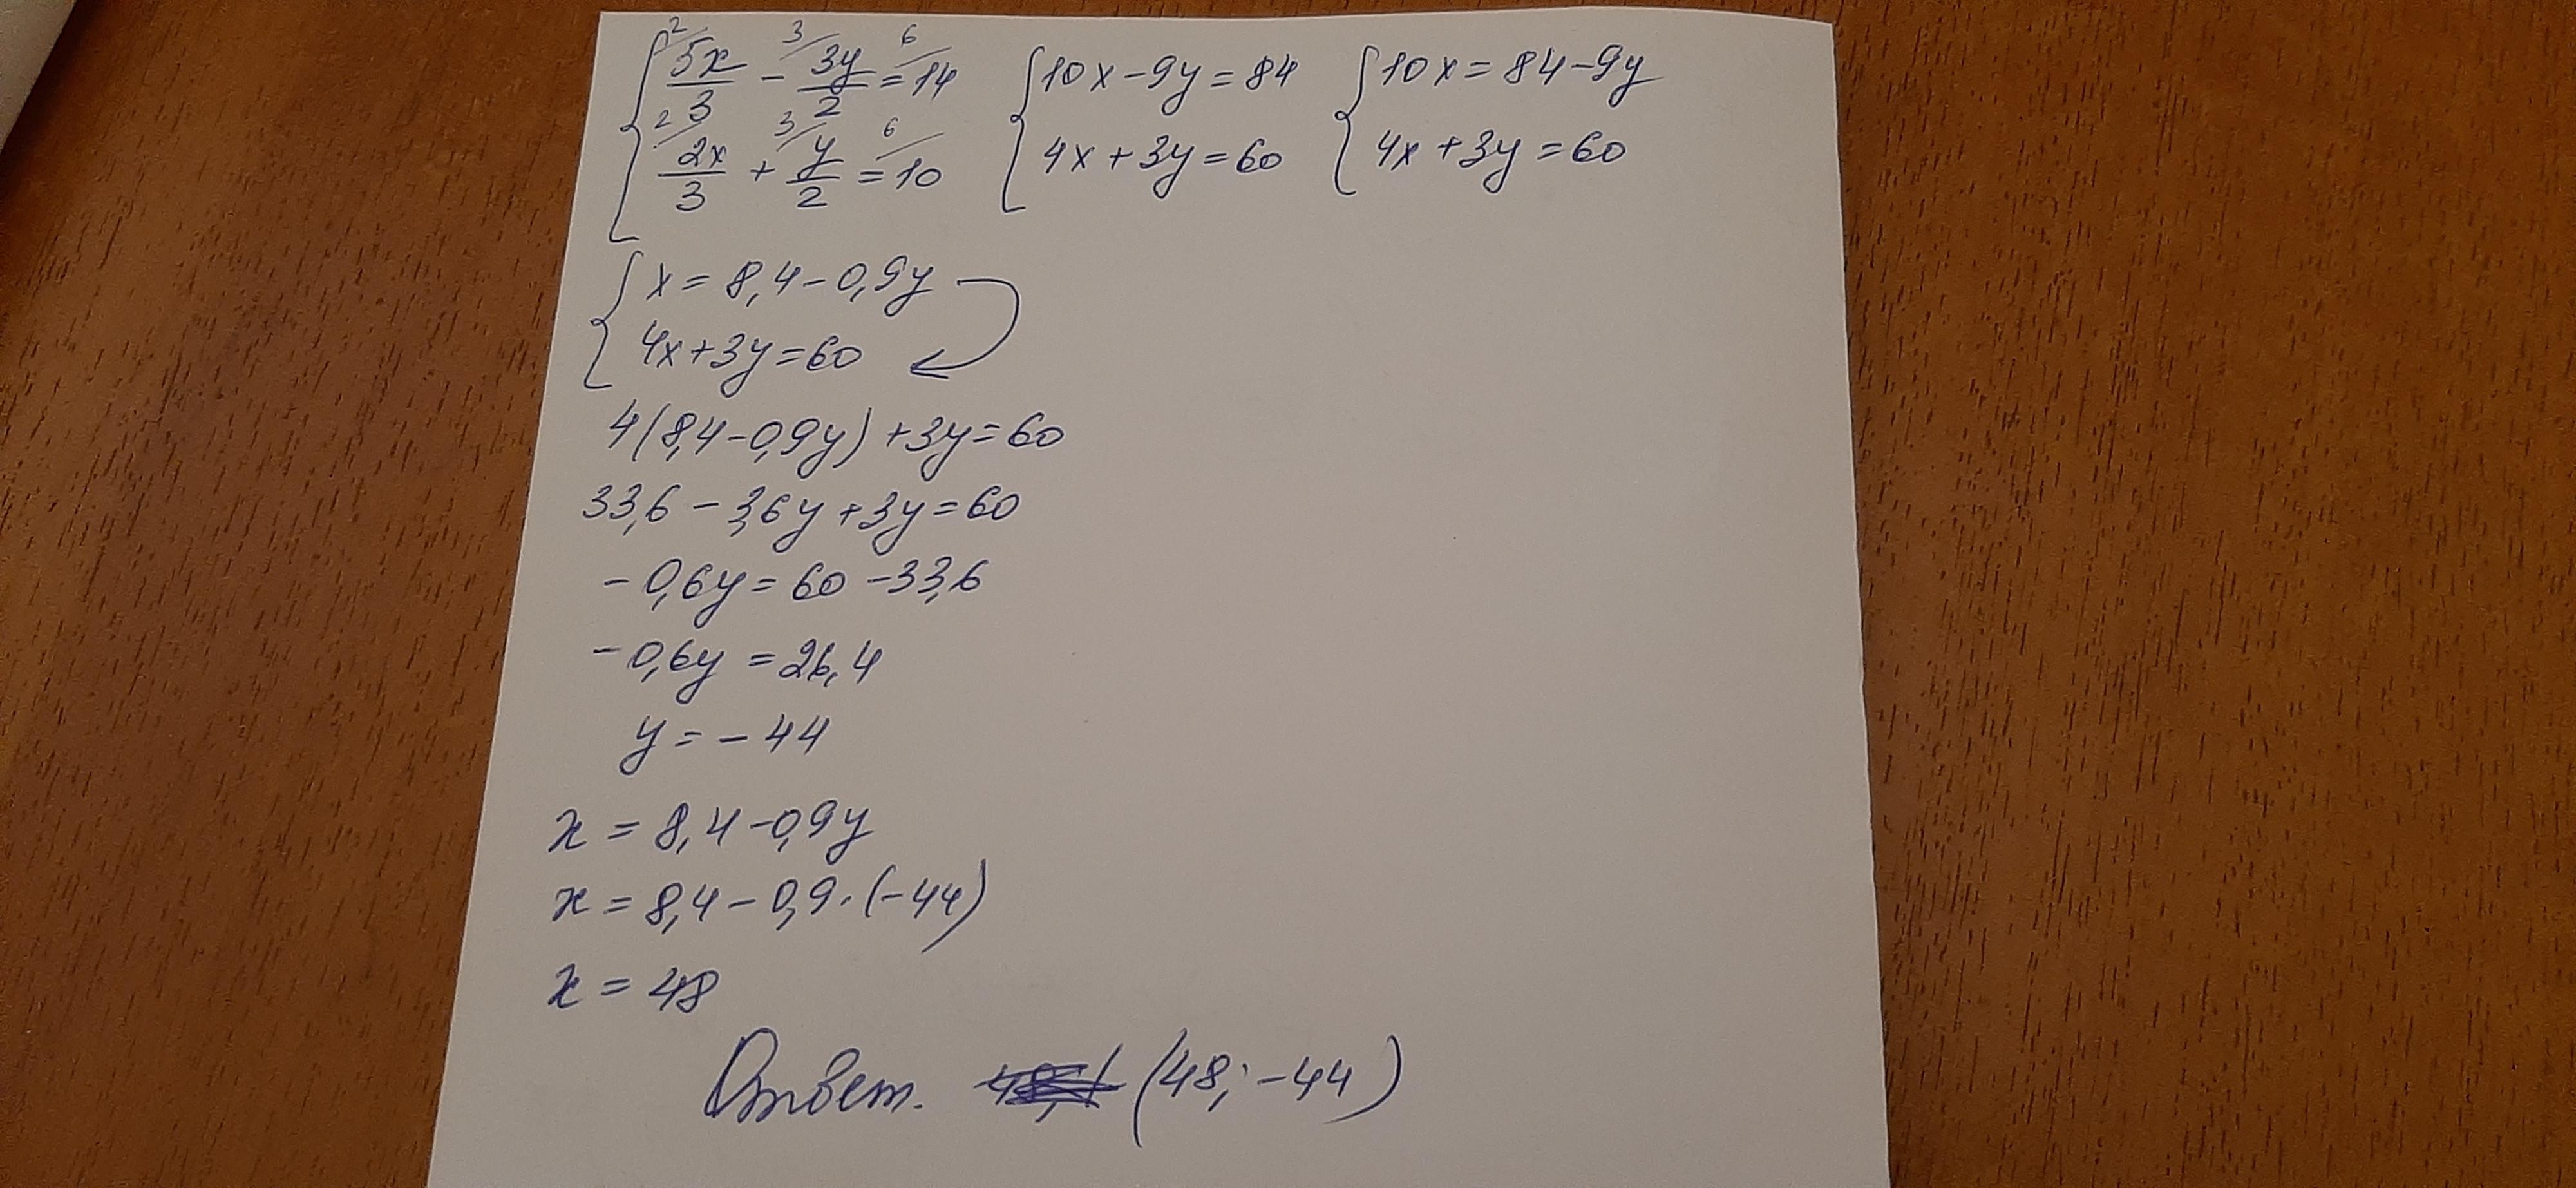 5x/3 - 3y/2 = 14 10x - 9y = 84 10x = 84 - 9y
2x/3 + y/2 = 10 4x + 3y = 60 4x + 3y = 60
x = 8,4 - 0,9y
4x + 3y = 60
4(8,4 - 0,9y) + 3y = 60
33,6 - 3,6y + 3y = 60
- 0,6y = 60 - 33,6
- 0,6y = 26,4
y = - 44
x = 8,4 - 0,9y
x = 8,4 - 0,9 · (- 44)
x = 48
Ответ. (48; - 44)